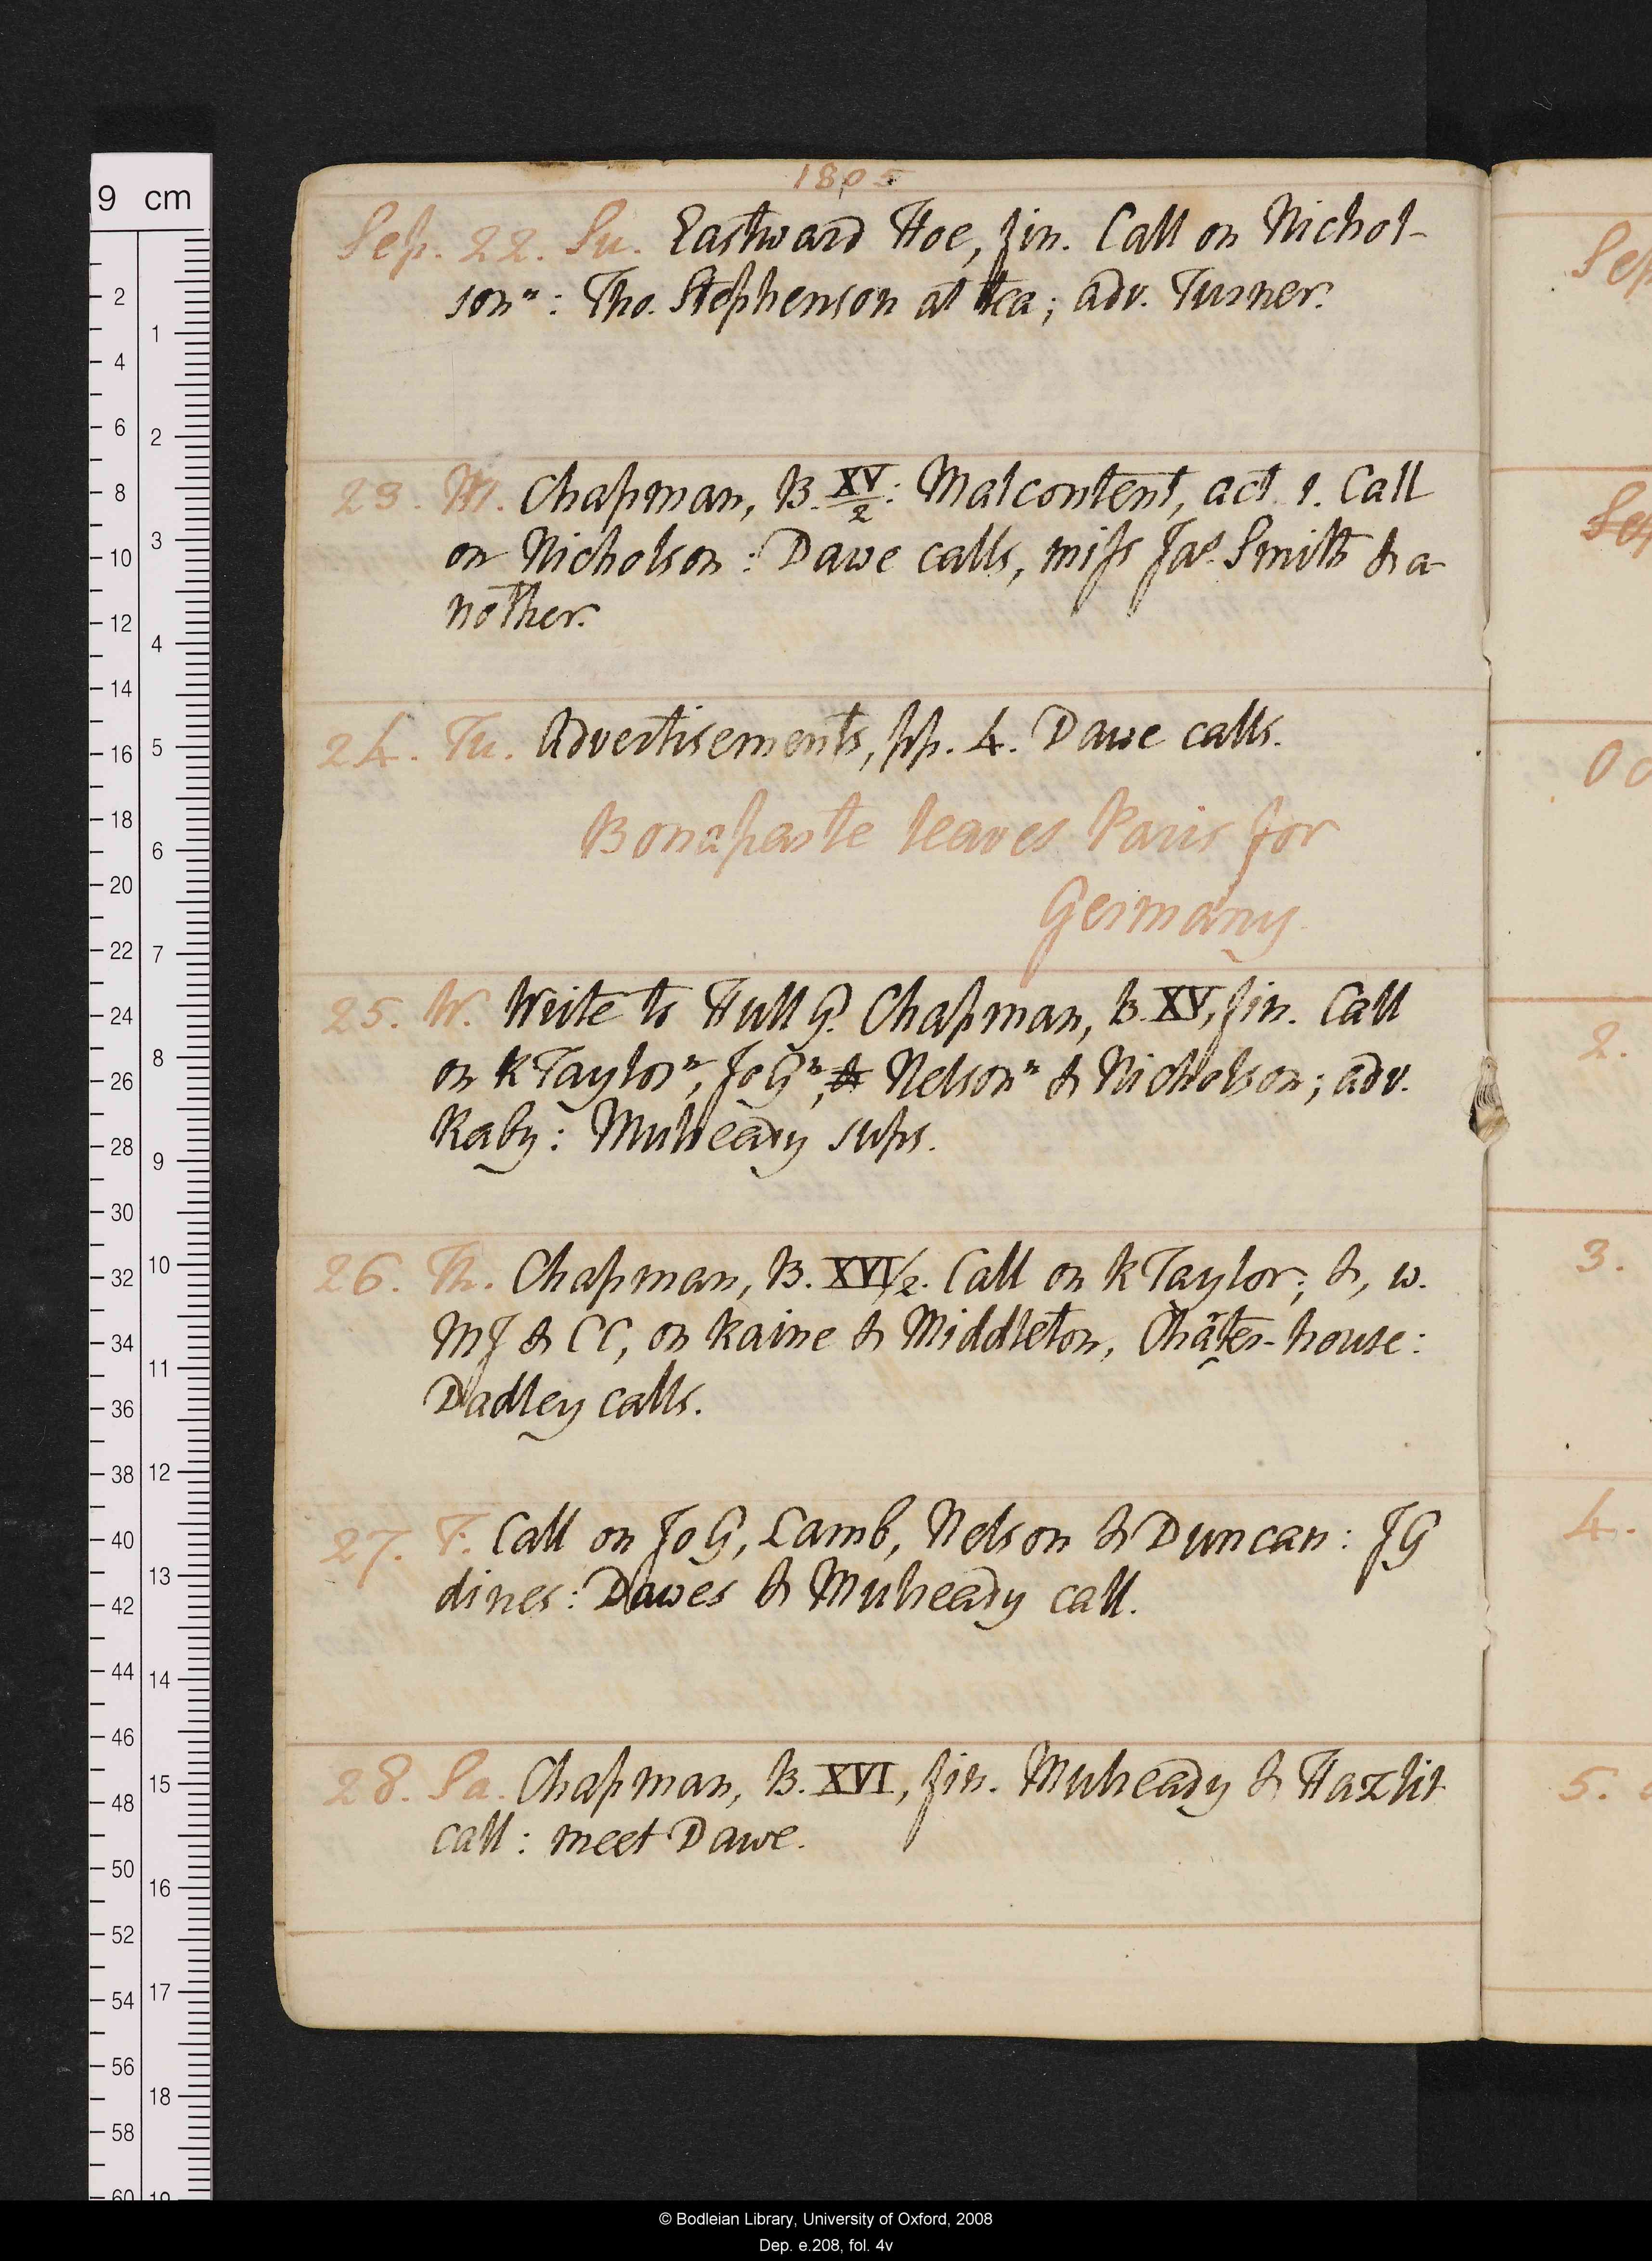 1805
Sep. 22. Su. Eastward Hoe, fin. Call on Nichol-
son n: Tho. Stephenson at tea; adv. Turner.
23. M. Chapman, B. XV/2: Malcontent, act 1. Call
on Nicholson: Dawe calls, miss Jas Smith & a-
nother.
24. Tu. Advertisements, pp. 4. Dawe calls.
Bonaparte leaves Paris for
Germany
25. W. Write to Hull G. Chapman, B. XV, fin. Call
on R Taylor n, Jo G n, & Nelson n & Nicholson; adv.
Raby: Mulready sups.
26. Th. Chapman, B. XVI/2. Call on R Taylor; &, w.
MJ & CC, on Raine & Middleton, Chater-house:
Dadley calls.
27. F. Call on Jo G, Lamb, Nelson & Duncan: JG
dines: Dawes & Mulready call.
28. Sa. Chapman, B. XVI, fin. Mulready & Hazlit
call: meet Dawe.
Sep
Sep
Oc
2.
3.
4.
5.
9 cm
2
4
6
8
10
12
14
16
18
20
22
24
26
28
30
32
34
36
38
40
42
44
46
48
50
52
54
56
58
60
1
2
3
4
5
6
7
8
9
10
11
12
13
14
15
16
17
18
19
© Bodleian Library, University of Oxford, 2008
Dep. e.208, fol. 4v